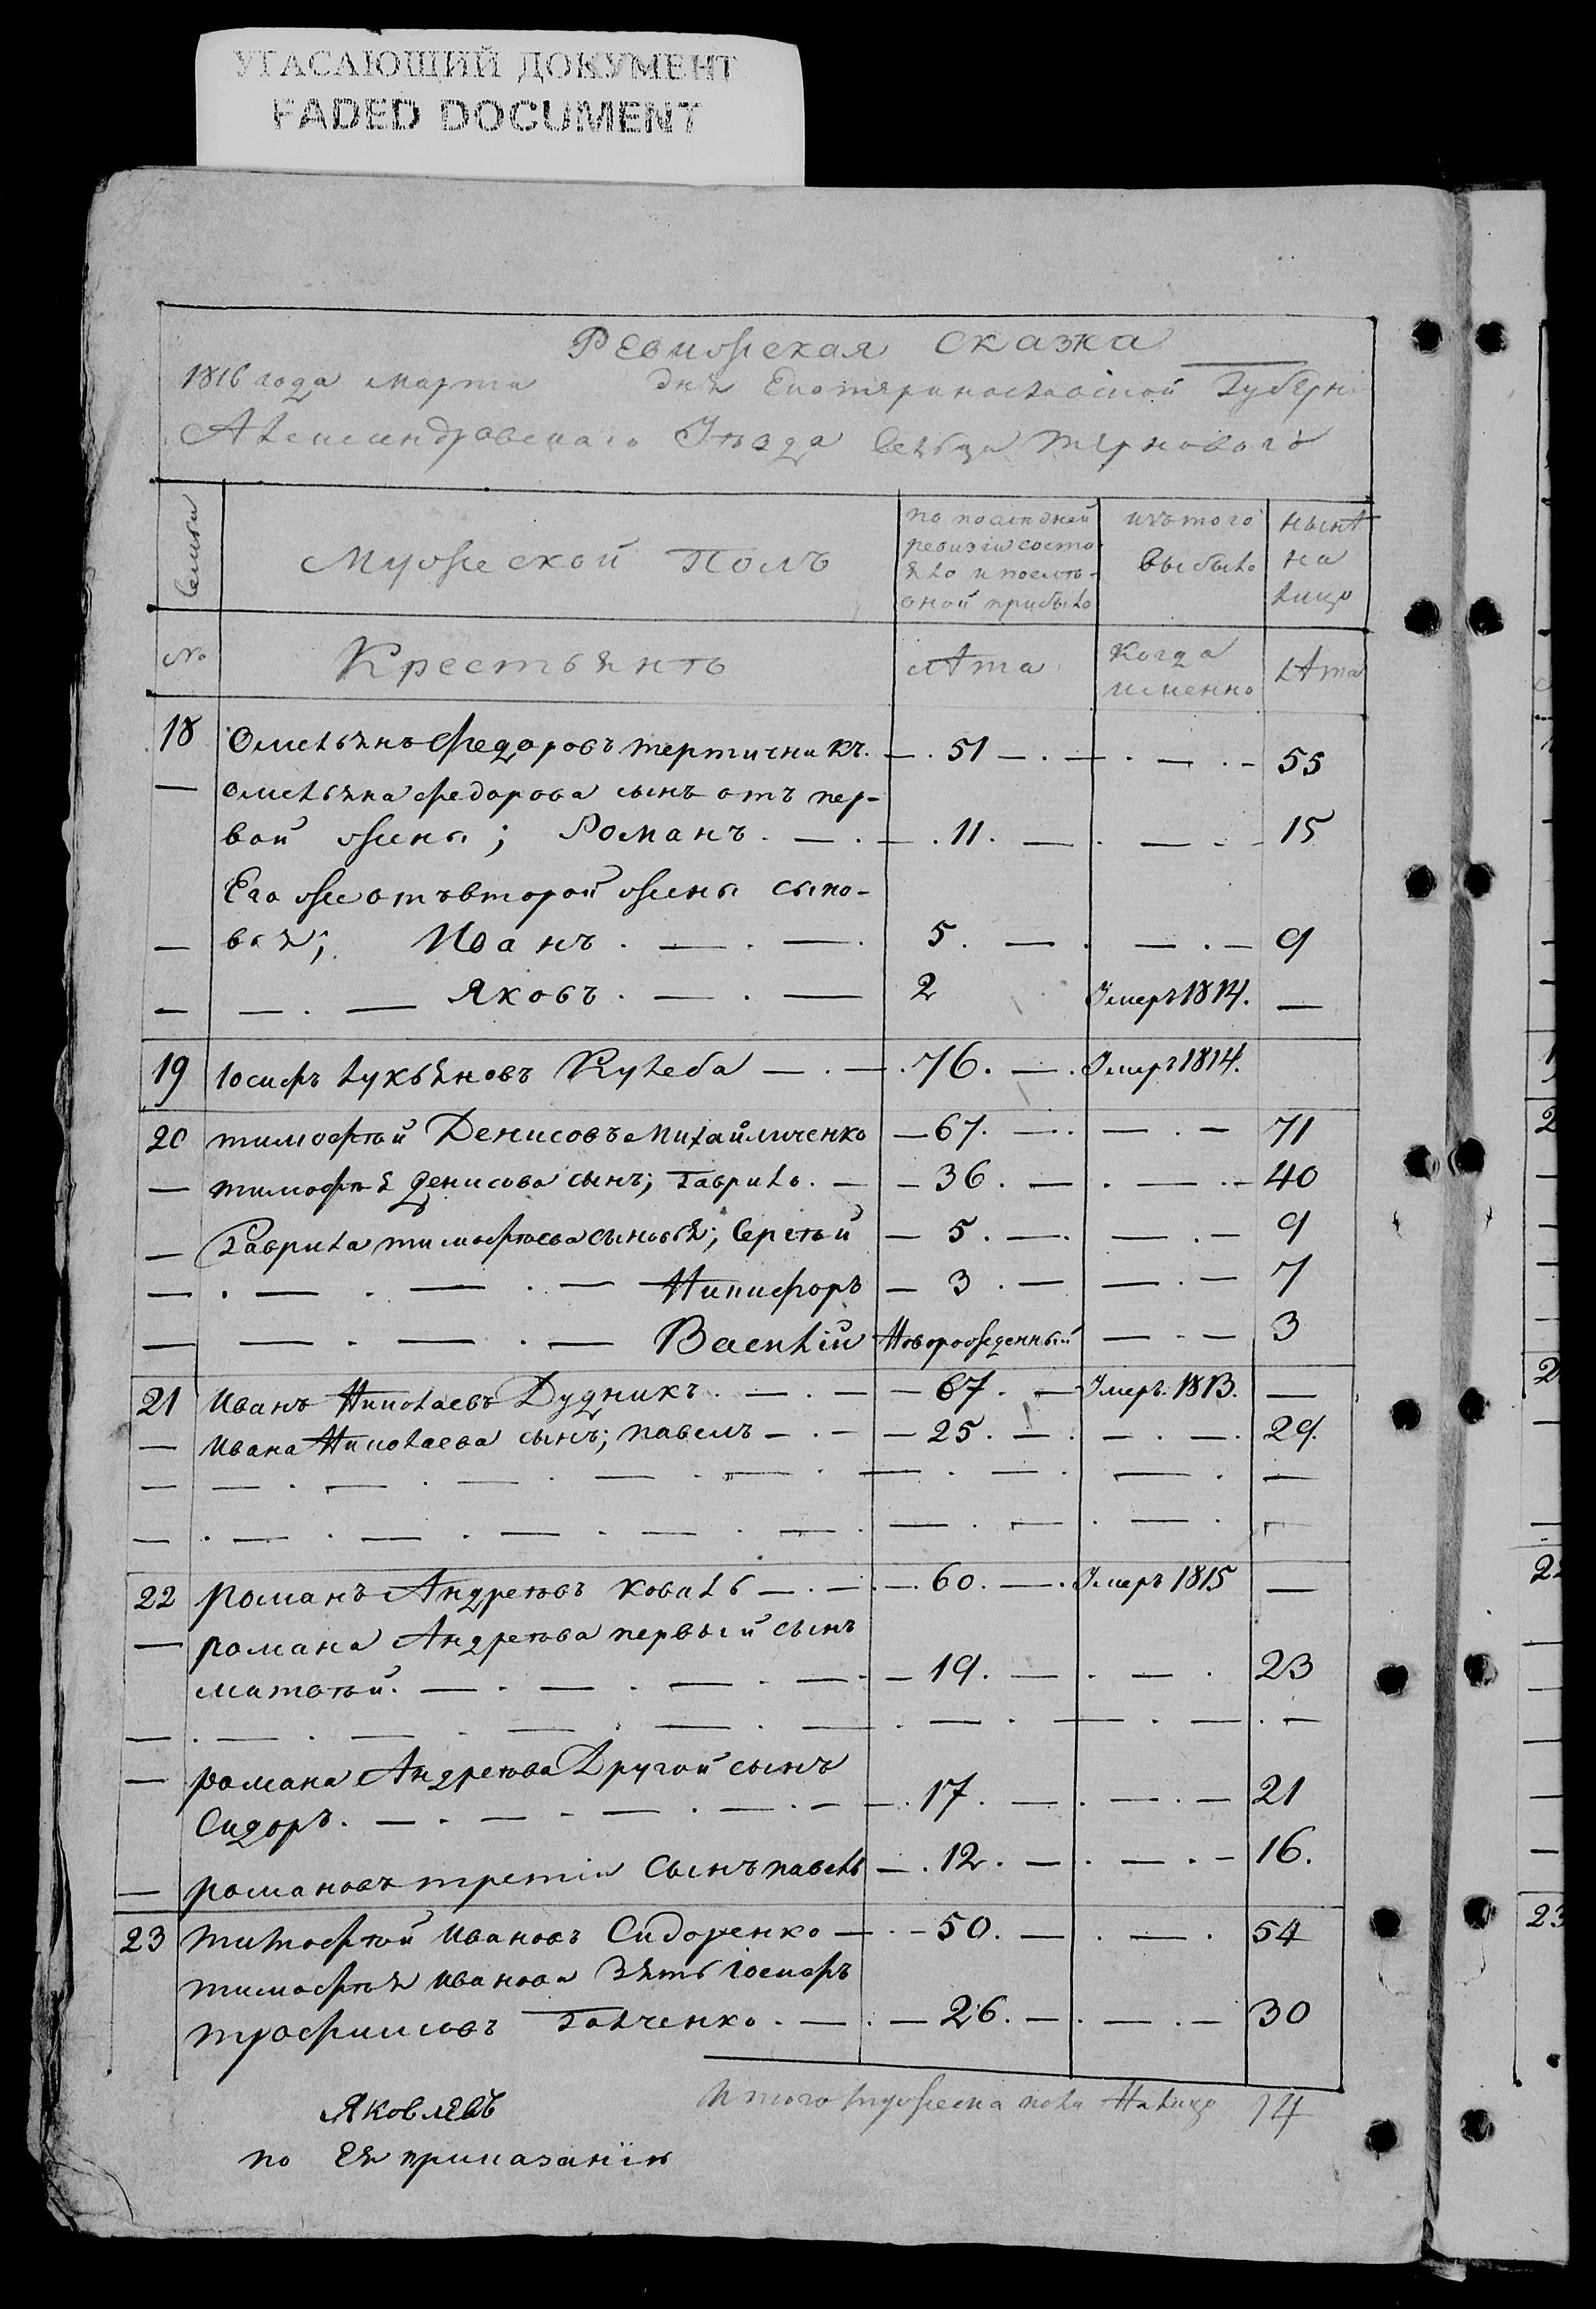 УГАСАЮЩИЙ ДОКУМЕНТ
FADED DOCUMENT
Ревижская сказка
1816 года марта дня Екатеринославской Губерни
Александровскаго Уѣзда Сельца Терноваго
Семьи
Мужеской Полъ
по последней ревизіи состояло и послѣ оной прибыло
изъ того выбыло
нынѣ на лицо
№ Крестьянъ лѣта когда именно лѣта
18 Омельянъ Федоровъ тертичникъ. — . 51 — . — . — . — 55
— Омельяна Федорова сынъ отъ пер-
вой жены; Романъ. — . — . 11. — . — . — 15
Его же отъ второй жены сыно-
— вья; Иванъ . — . — . 5. — . — . — 9
— — . — Яковъ . — . — 2 Умеръ 1814. —
19 Іосифъ Лукьяновъ Кулеба — . — . 76. — . Умеръ 1814.
20 тимофѣй Денисовъ Михайличенко — 67. — . — . — 71
— тимофѣя Денисова сынъ; Гаврило. — — 36. — . — . — 40
— Гаврила тимофѣева сыновья; Сергѣй — 5. — . — . — 9
— . — . — . — Никифоръ — 3 . — — . — 7
— — . — . — Василій Новорожденный — . — 3
21 Иванъ Николаевъ Дудникъ. — . — — 67. — Умеръ. 1813. —
— Ивана Николаева сынъ; павелъ — . — — 25. — . — . — . 29.
— — . — . — . — . — . — . — . — . — . —
— . — . — . — . — . — . — . — . — . —
22 Романъ Андреѣвъ коваль — . — . — . 60. — . Умеръ 1815 —
— романа Андреѣва первый сынъ
матвѣй. — . — . — . — . — 19. — . — . 23
— . — . — . — . — . — . — . — . — . — . —
— романа Андреѣва Другой сынъ
Сидоръ. — . — . — . — . — — . 17. — . — . — 21
— романовъ третій Сынъ павелъ — . 12. — . — . — 16.
23 тимофѣй Ивановъ Сидоренко — . — 50. — . — . 54
тимофѣя Иванова Зять Іосифъ
трофимовъ Галченко. — . — 26. — . — . — 30
Итого мужеска пола На лицо 14
Яковлевъ
по Ея приказанію